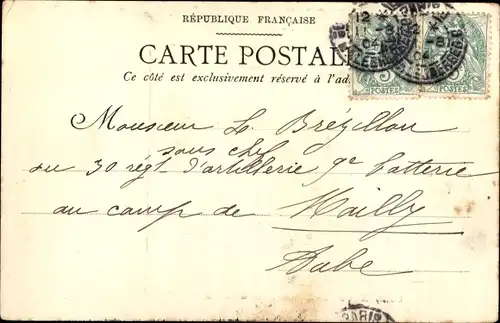 RÉPUBLIQUE FRANÇAISE
CARTE POSTALE
Ce côté est exclusivement réservé à l'ad
Monsieur L. Brézillon
sous chef
au 30 régt d'artillerie 9e batterie
au camp de Mailly
Aube
POSTES POSTES
PARIS